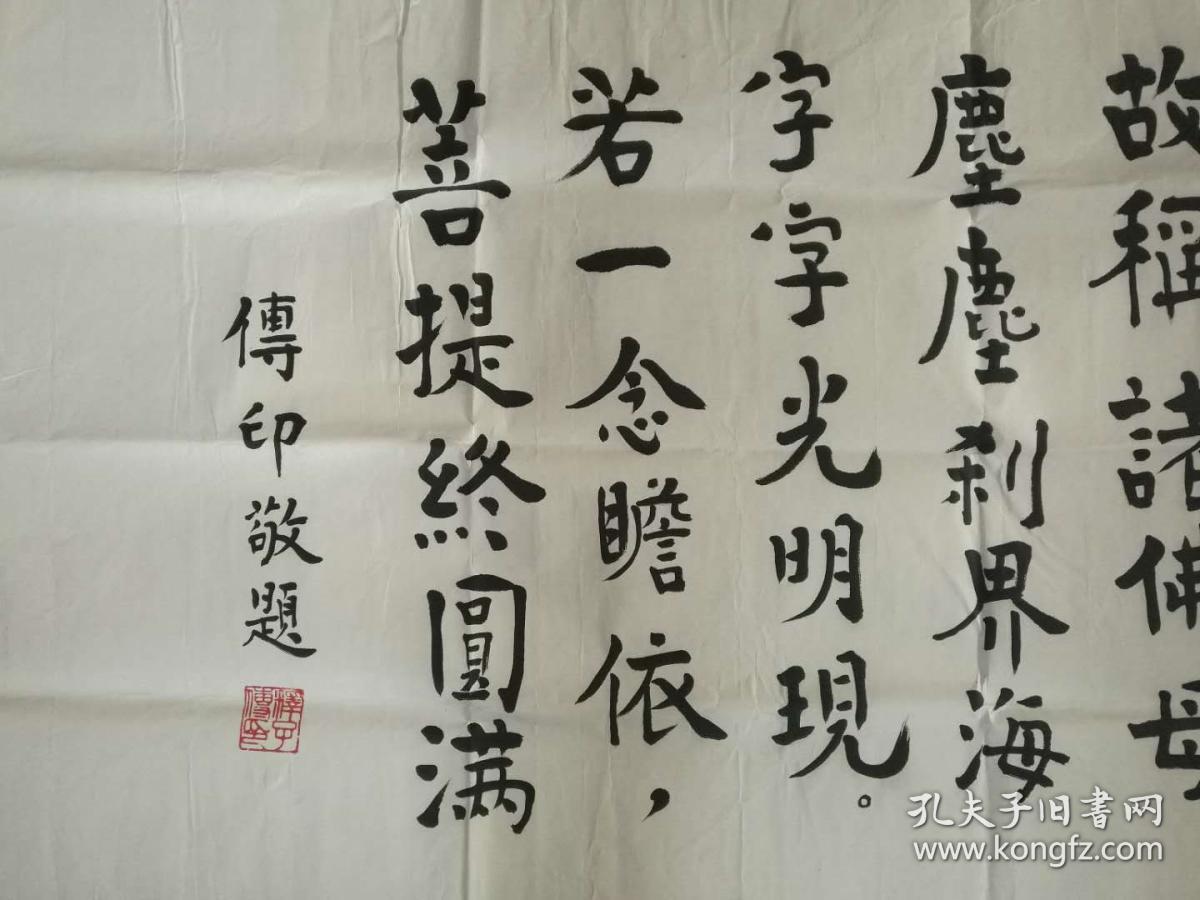 故稱諸佛母
塵塵刹界海
字字光明現。
若一念瞻依，
菩提終圓满
傳印敬題
孔夫子旧书网
www.kongfz.com